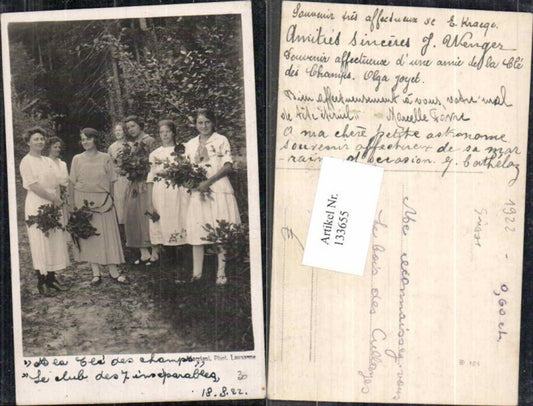 " A la Clé des champs "
" Le club des 7 inséparables,
18.8.22.
Phot. Lausanne
Souvenir très affectueux de E. Kraege.
Amitiés sincères J. Wenger
Souvenir affectueux d'une amie de la Clé
des Champs. Olga Joyet.
Bien affectueusement à vous, votre mal
de tête Marcelle Favre
A ma chère petite astronome
souvenir affectueux de sa mar
raine d'occasion G.
Artikel Nr.
133655
Me reconnaissez-vous
Le bois des
1922 -
0,60 ct.